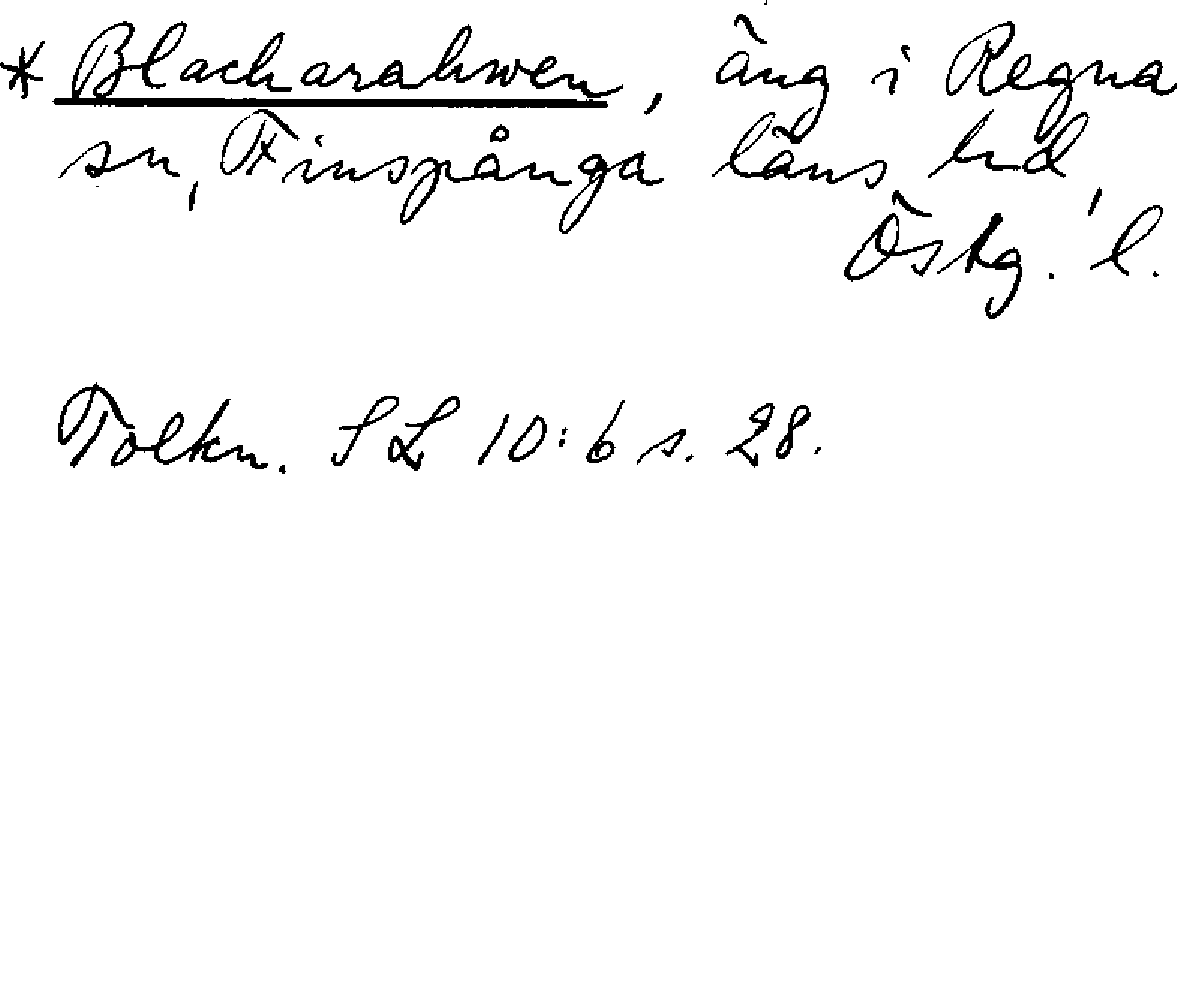 * Blacharahwen, äng i Regna
sn, Finspånga läns hd,
Östg. l.
Tolkn. SL 10:6 s. 28.